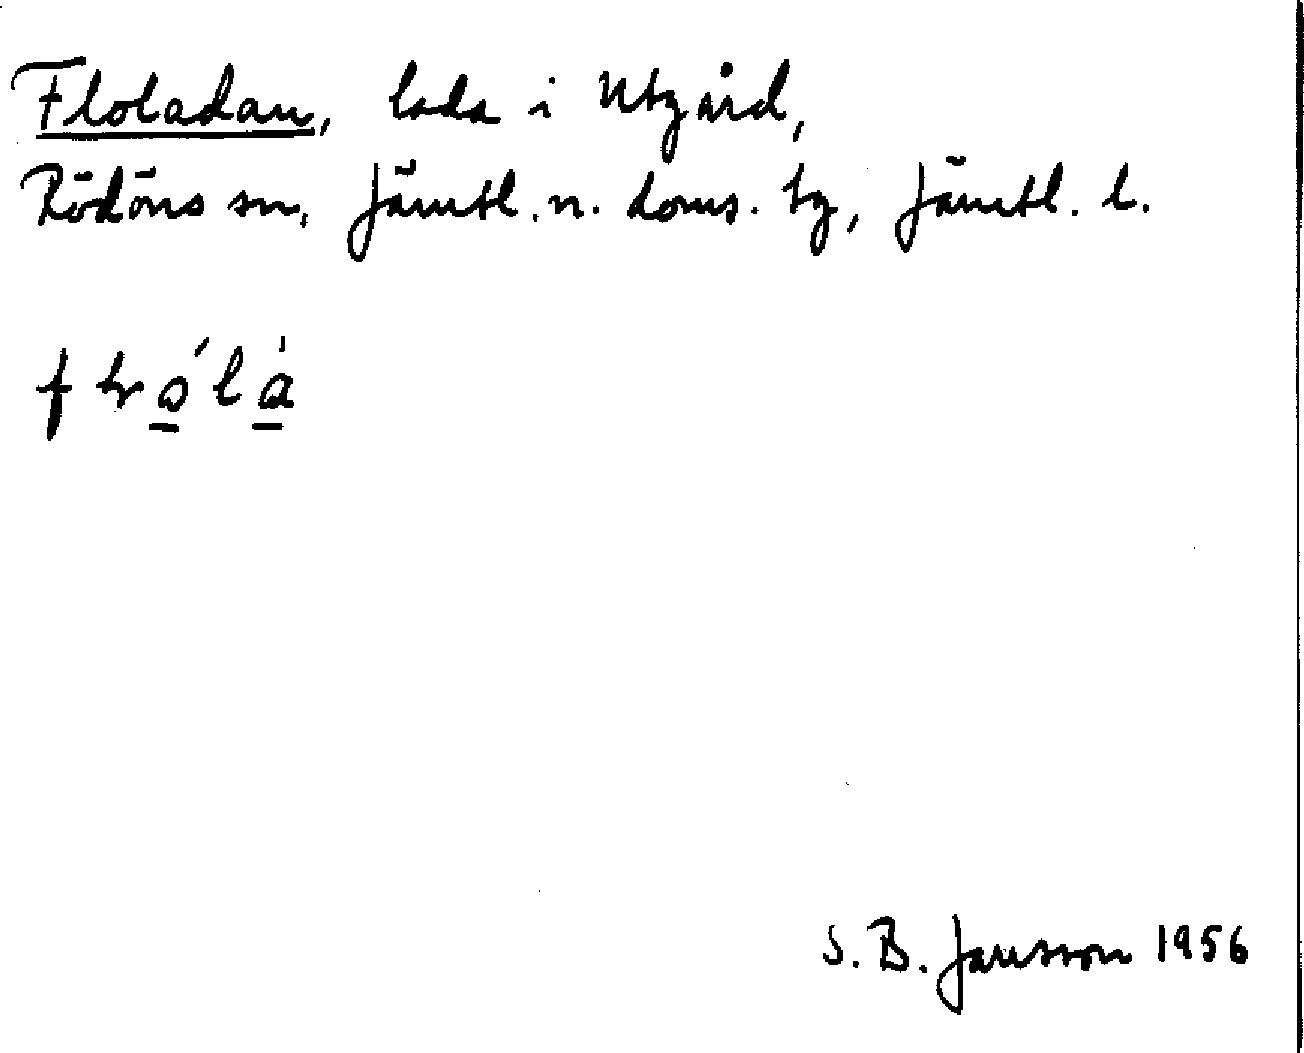 Floladan, lada i Utgård,
Rödöns sn, Jämtl. n. doms. tg, Jämtl. l.
S. B. Jansson 1956